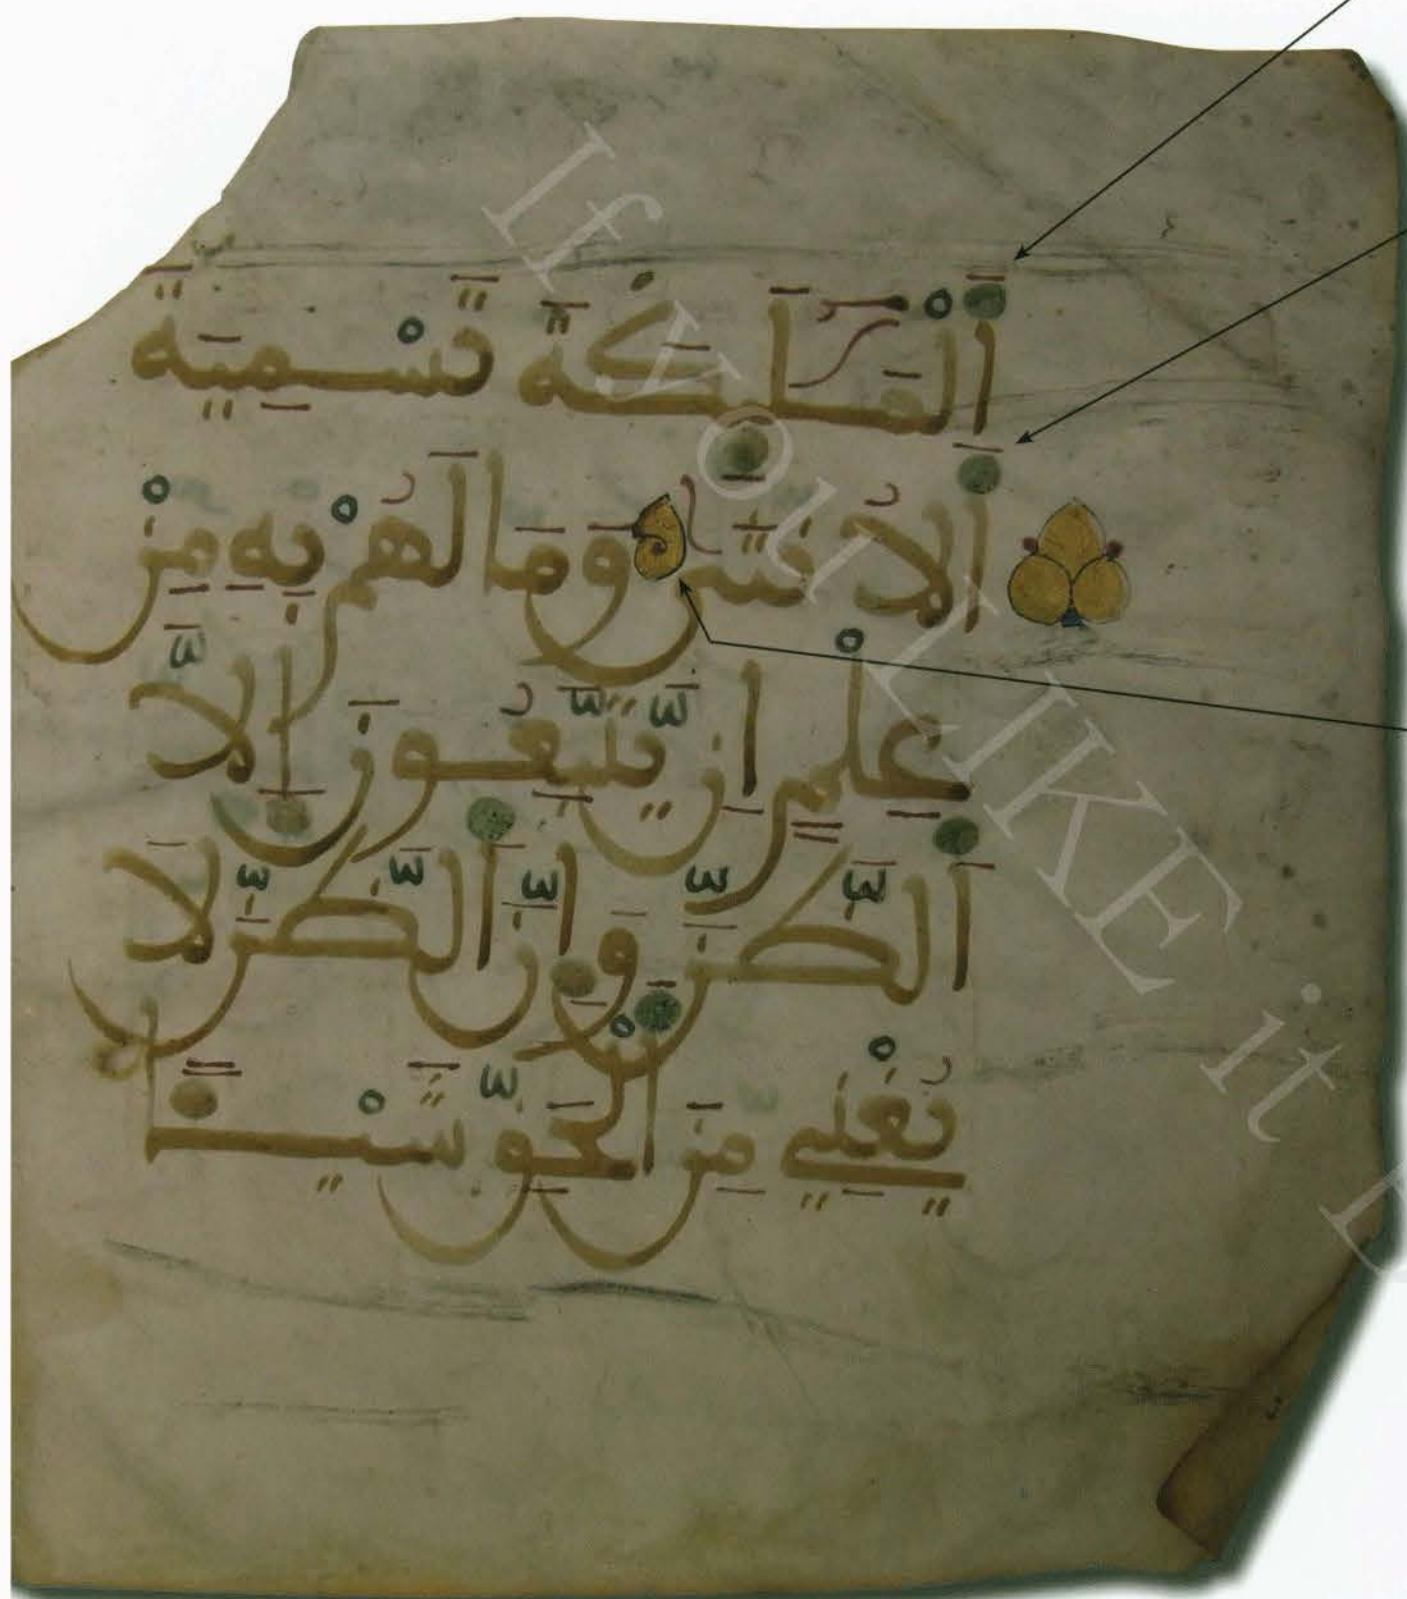 اَلْمَلَٰٓئِكَةَ تَسْمِيَةَ
اَلُانثَىٰ وَمَا لَهُمْ بِهِ مِنْ
عِلْمٍ اِن يَّتَّبِعُونَ إِلَّا
اَلظَّنَّ وَإِنَّ اَلظَّنَّ لَا
يُغْنِي مِنَ اَلْحَقِّ شَيْـًٔا
If you LIKE it